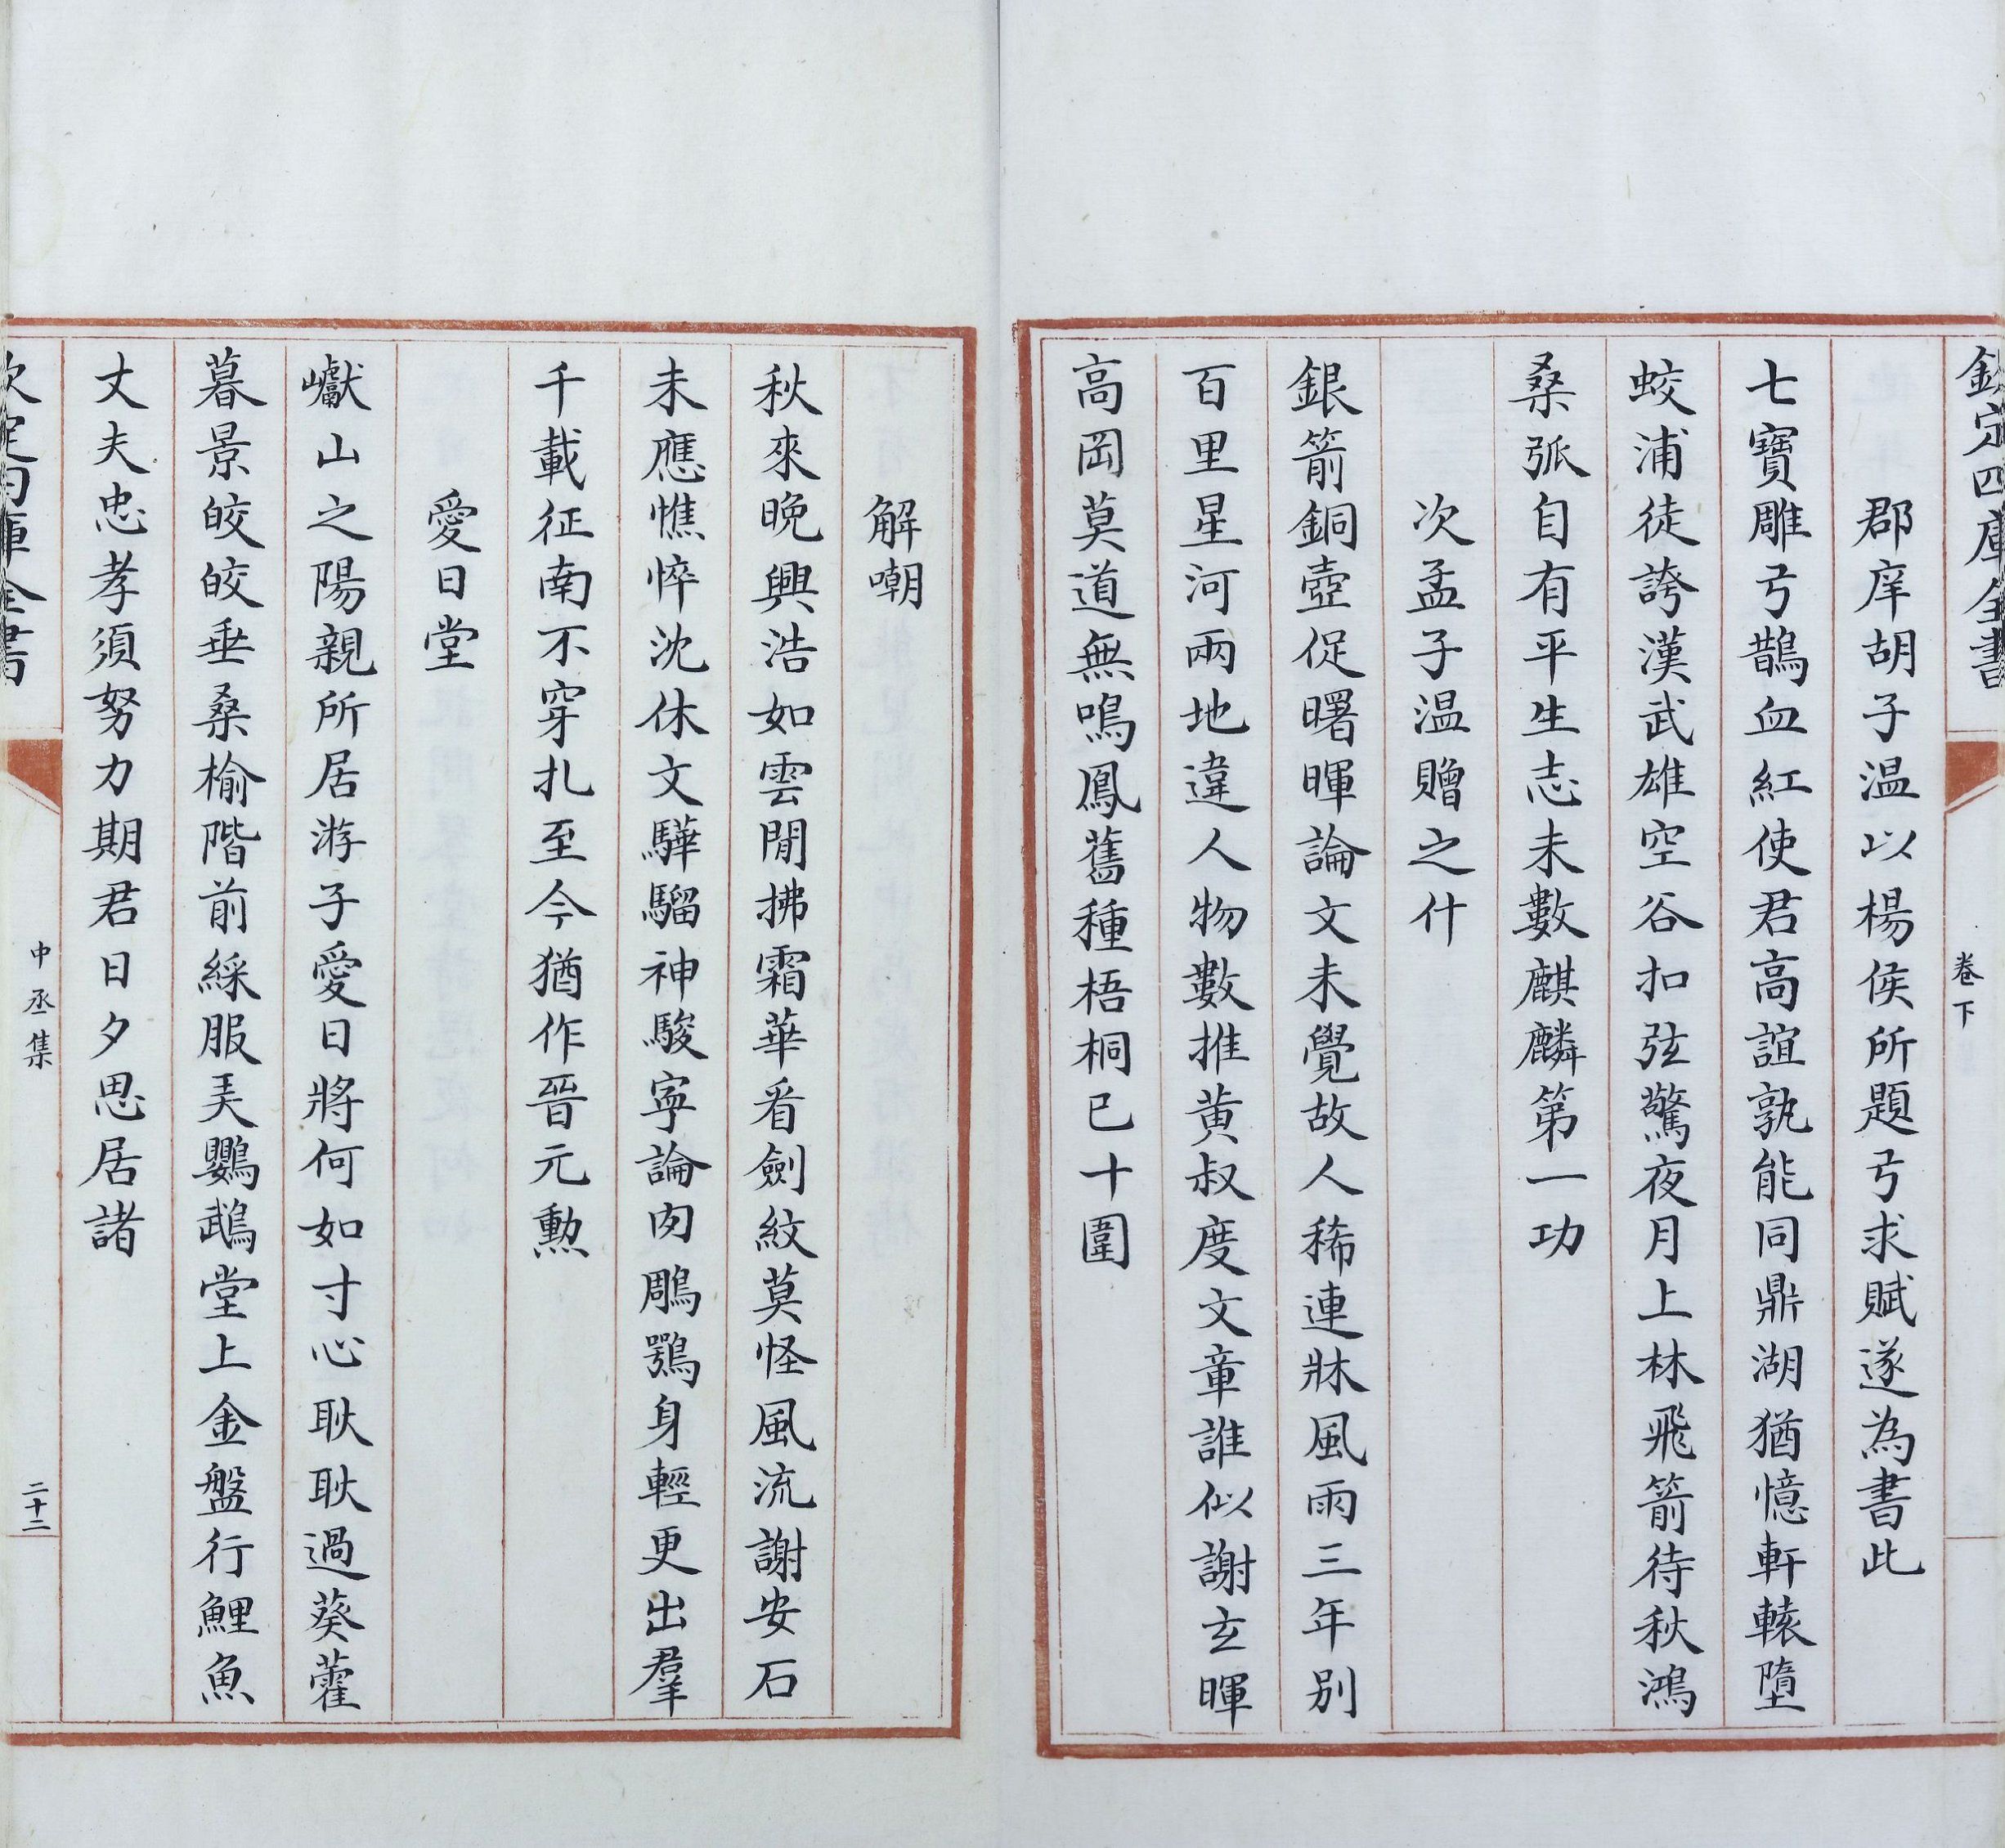 欽定四庫全書
卷下
郡庠胡子温以楊侯所題弓求賦遂為書此
七寶雕弓鵲血紅使君高誼孰能同鼎湖猶憶軒轅墮
蛟浦徒誇漢武雄空谷扣弦驚夜月上林飛箭待秋鴻
桑弧自有平生志未數麒麟第一功
次孟子温贈之什
銀箭銅壺促曙暉論文未覺故人稀連牀風雨三年別
百里星河兩地違人物數推黄叔度文章誰似謝玄暉
高岡莫道無鳴鳳舊種梧桐已十圍
解嘲
秋來晚興浩如雲閒拂霜華看劍紋莫怪風流謝安石
未應憔悴沈休文驊騮神駿寧論肉鵰鶚身輕更出羣
千載征南不穿扎至今猶作晉元勲
愛日堂
巘山之陽親所居游子愛日將何如寸心耿耿過葵藿
暮景皎皎垂桑榆階前綵服美鸚鵡堂上金盤行鯉魚
丈夫忠孝須努力期君日夕思居諸
欽定四庫全書
中丞集
二十二